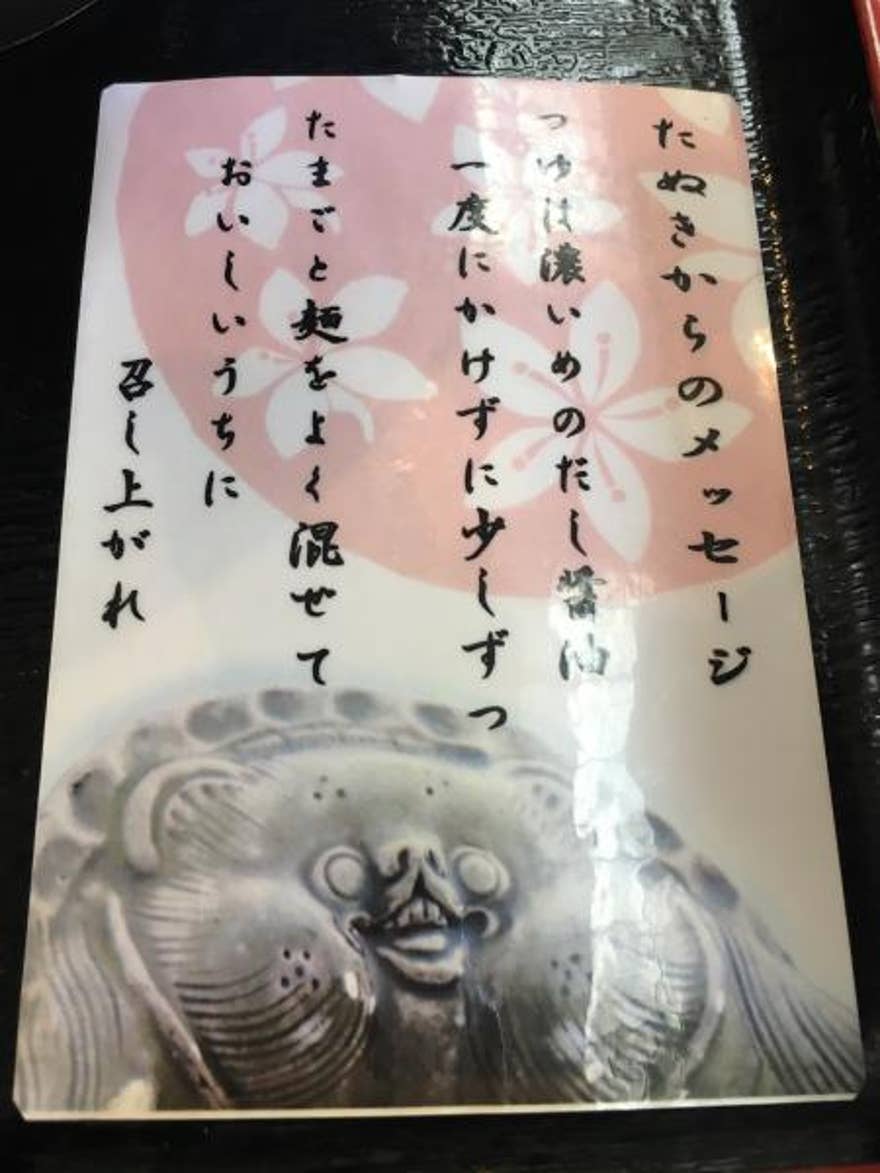 たぬきからのメッセージ
つゆは濃いめのだし醤油
一度にかけずに少しずつ
たまごと麺をよく混ぜて
おいしいうちに
召し上がれ